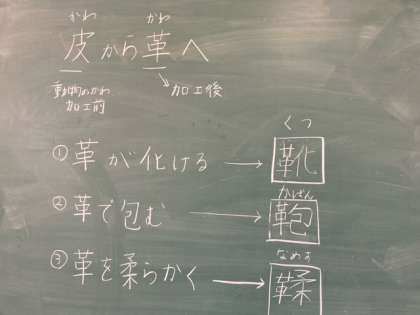 かわ かわ
皮から革へ
動物のかわ 加工後
加工前
くつ
①革が化ける → 靴
かばん
②革で包む → 鞄
なめす
③革を柔らかく → 鞣